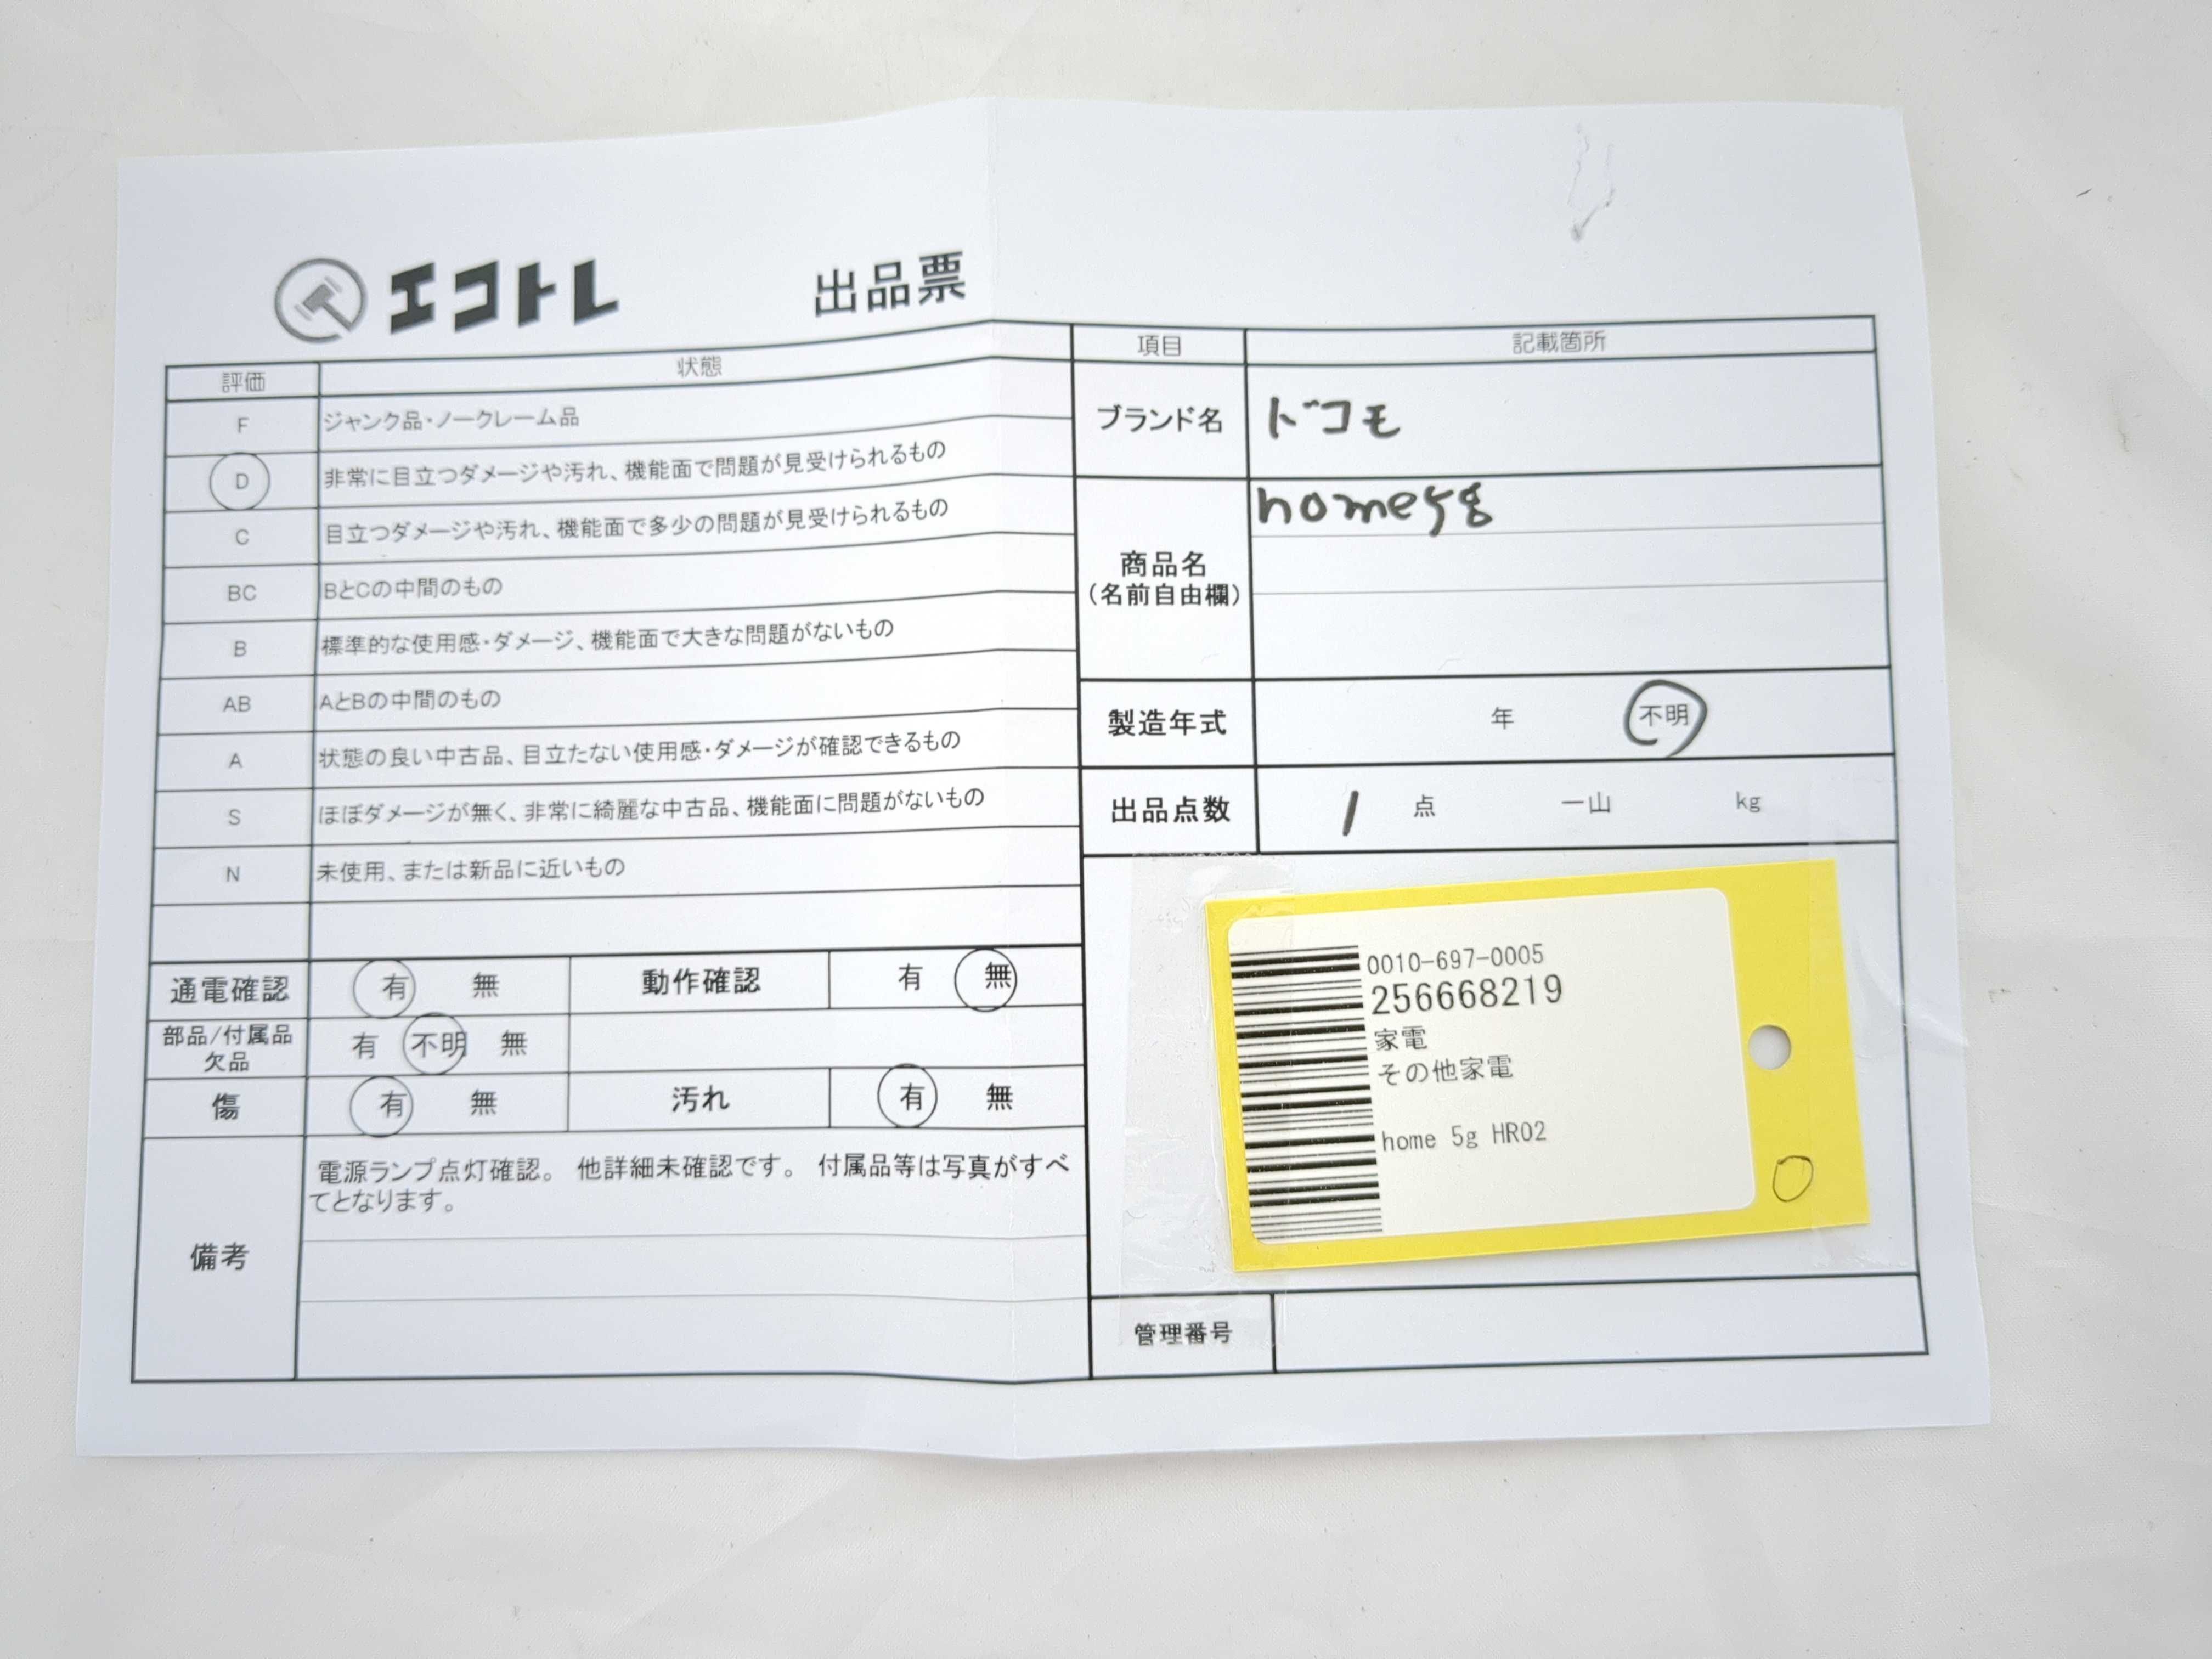 エコトレ 出品票
評価 状態
F ジャンク品・ノークレーム品
D 非常に目立つダメージや汚れ、機能面で問題が見受けられるもの
C 目立つダメージや汚れ、機能面で多少の問題が見受けられるもの
BC BとCの中間のもの
B 標準的な使用感・ダメージ、機能面で大きな問題がないもの
AB AとBの中間のもの
A 状態の良い中古品、目立たない使用感・ダメージが確認できるもの
S ほぼダメージが無く、非常に綺麗な中古品、機能面に問題がないもの
N 未使用、または新品に近いもの
通電確認 有 無 動作確認 有 無
部品/付属品
欠品 有 不明 無
傷 有 無 汚れ 有 無
備考
電源ランプ点灯確認。 他詳細未確認です。 付属品等は写真がすべ
てとなります。
項目 記載箇所
ブランド名 ドコモ
商品名
(名前自由欄)
home5g
製造年式 年 不明
出品点数 1 点 一山 kg
0010-697-0005
256668219
家電
その他家電
home 5g HR02
管理番号